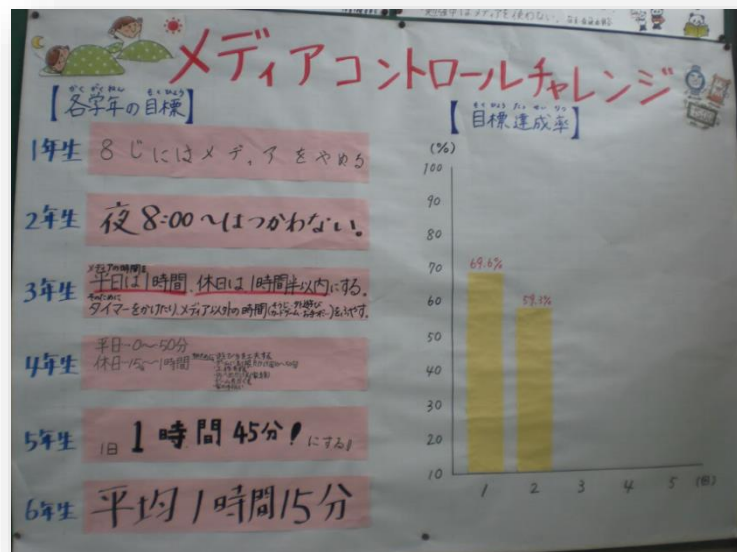 メディアコントロールチャレンジ
かくがくねん もくひょう
【各学年の目標】
1年生 8じにはメディアをやめる
2年生 夜8:00〜はつかわない。
3年生
メディアの時間を
平日は1時間、休日は1時間半以内にする。
そのために
タイマーをかけたり、メディア以外の時間をふやす。
4年生
平日-0〜50分
休日-15分〜1時間
5年生 1日1時間45分!にする!
6年生 平均1時間15分
もくひょうたっせいりつ
【目標達成率】
(%)
100
90
80
70
60
50
40
30
20
10
69.6%
59.3%
1 2 3 4 5 (回)